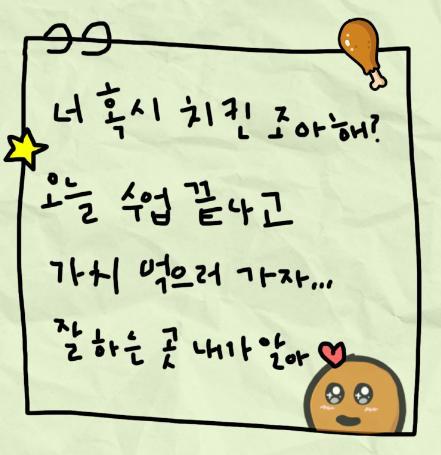 너 혹시 치킨 조아해?
오늘 수업 끝나고
가치 먹으러 가자...
잘 하는 곳 내가 알아